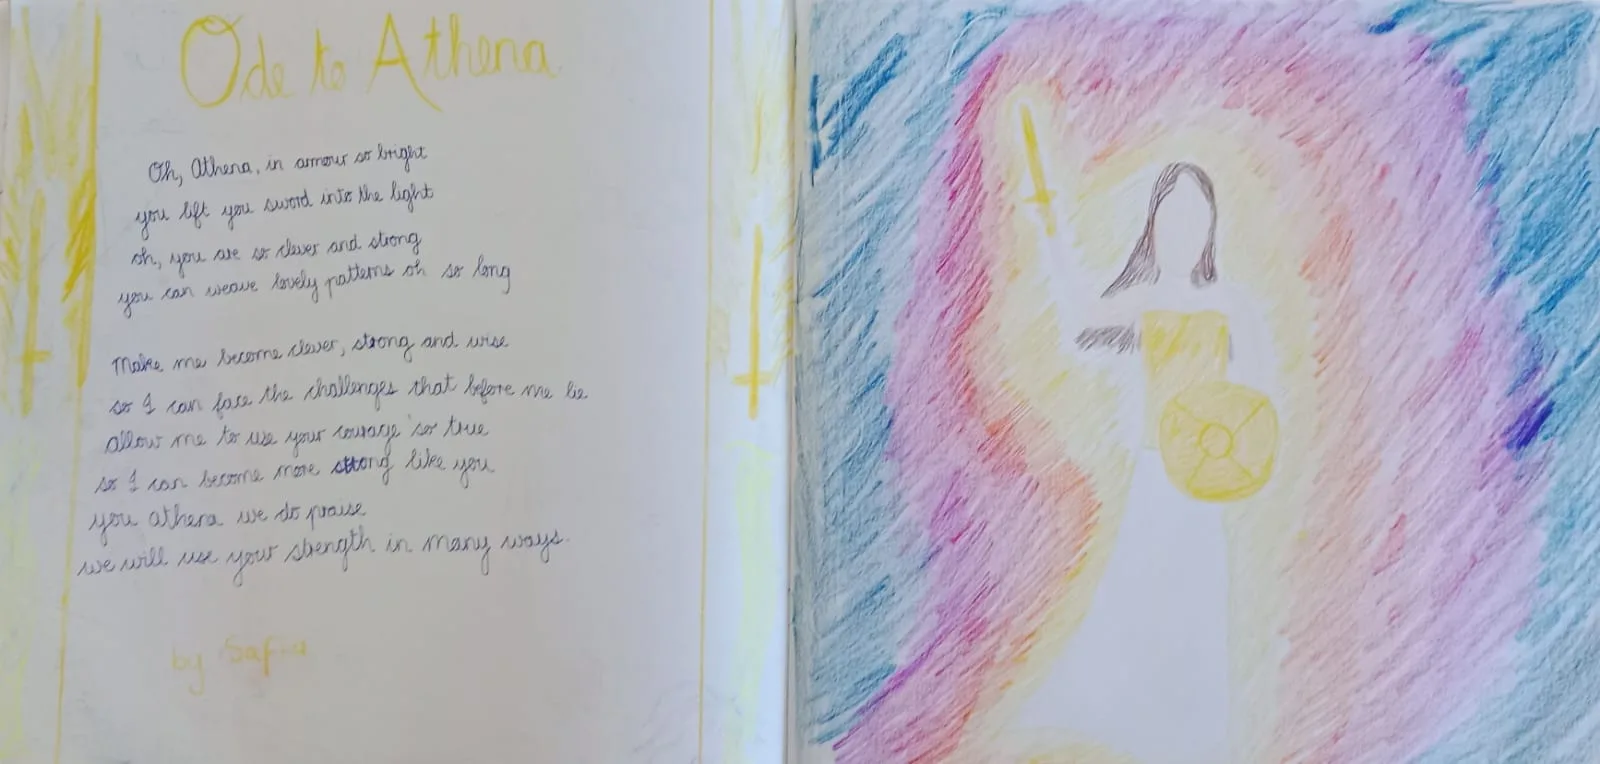 Ode to Athena
Oh, Athena, in amour so bright
you lift you sword into the light
oh, you are so clever and strong
you can weave lovely patterns oh so long
Make me become clever, strong and wise
so I can face the challenges that before me lie
allow me to use your courage so true
so I can become more strong like you
you athena we do praise
we will use your strength in many ways.
by Safia